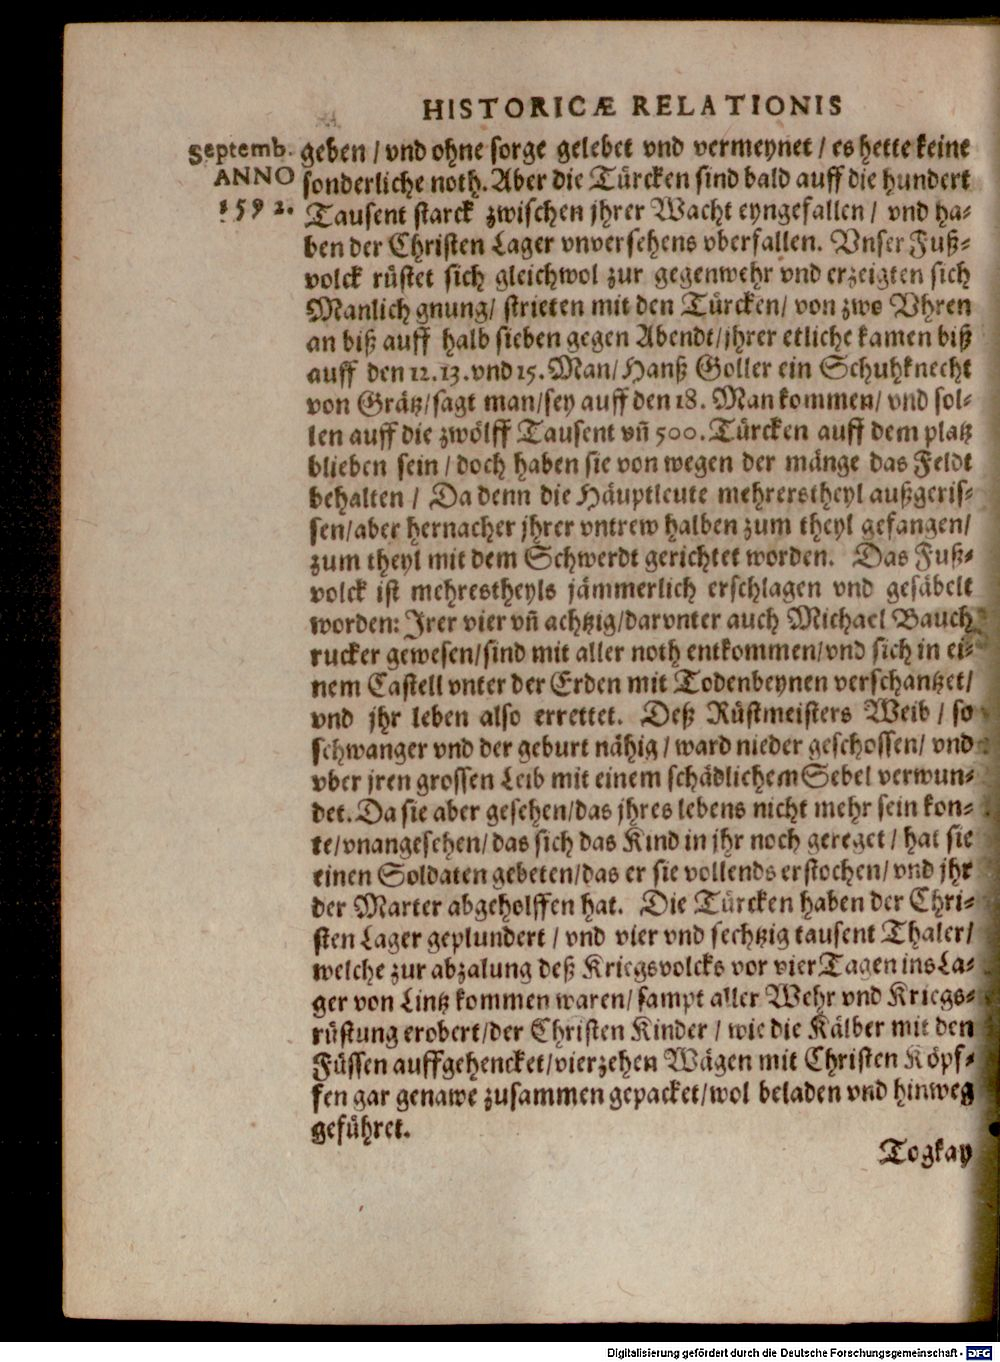 HISTORICÆ RELATIONIS
Septemb.
ANNO
1592.
geben / vnd ohne sorge gelebet vnd vermeynet / es hette keine
sonderliche noth. Aber die Türcken sind bald auff die hundert
Tausent starck zwischen jhrer Wacht eyngefallen / vnd ha-
ben der Christen Lager vnversehens vberfallen. Vnser Fuß-
volck rüstet sich gleichwol zur gegenwehr vnd erzeigten sich
Manlich gnung / strieten mit den Türcken / von zwo Vhren
an biß auff halb sieben gegen Abendt / jhrer etliche kamen biß
auff den 12. 13. vnd 15. Man / Hanß Goller ein Schuhknecht
von Grätz / sagt man / sey auff den 18. Man kommen / vnd sol-
len auff die zwölff Tausent vñ 500. Türcken auff dem platz
blieben sein / doch haben sie von wegen der mänge das Feldt
behalten / Da denn die Häuptleute mehrerstheyl außgeris-
sen / aber hernacher jhrer vntrew halben zum theyl gefangen /
zum theyl mit dem Schwerdt gerichtet worden. Das Fuß-
volck ist mehrestheyls jämmerlich erschlagen vnd gesäbelt
worden: Irer vier vñ achtzig / darvnter auch Michael Bauch
rucker gewesen / sind mit aller noth entkommen / vnd sich in ei-
nem Castell vnter der Erden mit Todenbeynen verschantzet /
vnd jhr leben also errettet. Deß Rüstmeisters Weib / so
schwanger vnd der geburt nähig / ward nieder geschossen / vnd
vber jren grossen Leib mit einem schädlichem Sebel verwun-
det. Da sie aber gesehen / das jhres lebens nicht mehr sein kon-
te / vnangesehen / das sich das Kind in jhr noch gereget / hat sie
einen Soldaten gebeten / das er sie vollends erstochen / vnd jhr
der Marter abgeholffen hat. Die Türcken haben der Chri-
sten Lager geplundert / vnd vier vnd sechtzig tausent Thaler /
welche zur abzalung deß Kriegsvolcks vor vier Tagen ins La-
ger von Lintz kommen waren / sampt aller Wehr vnd Kriegs-
rüstung erobert / der Christen Kinder / wie die Kälber mit den
Füssen auffgehencket / vierzehen Wägen mit Christen Köpf-
fen gar genawe zusammen gepacket / wol beladen vnd hinweg
geführet.
Togkay
Digitalisierung gefördert durch die Deutsche Forschungsgemeinschaft - DFG